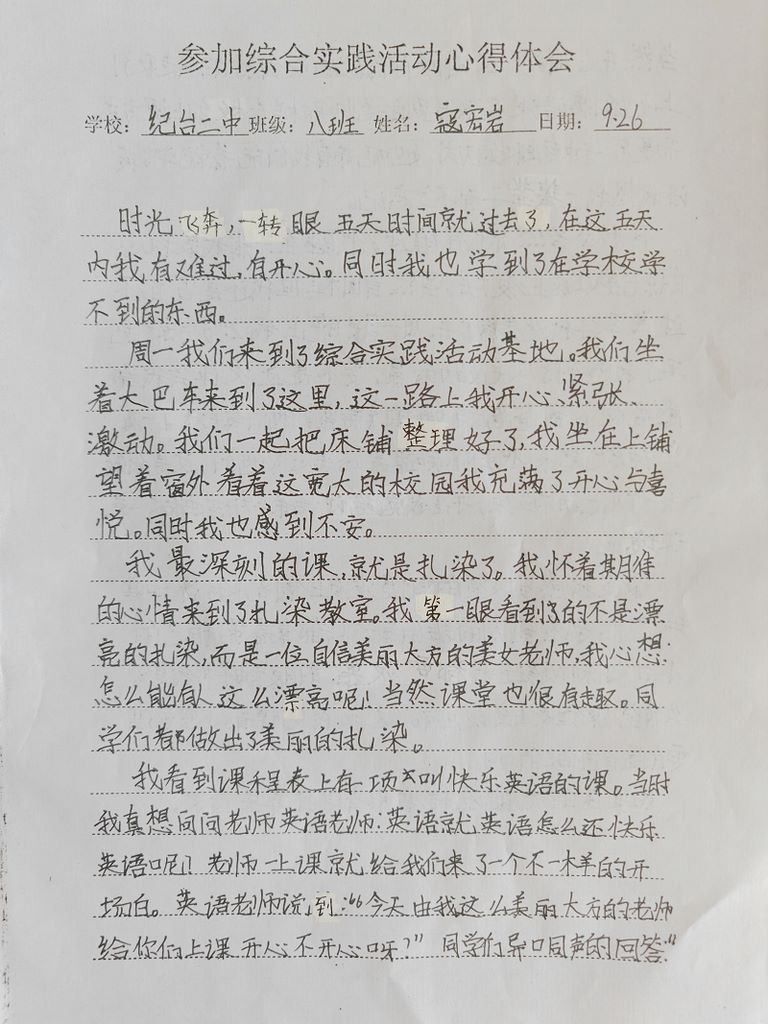 参加综合实践活动心得体会
学校：纪台二中 班级：八班 姓名：寇宏岩 日期：9.26
时光飞奔，一转眼五天时间就过去了，在这五天
内我有难过，有开心。同时我也学到了在学校学
不到的东西。
周一我们来到了综合实践活动基地。我们坐
着大巴车来到了这里，这一路上我开心、紧张、
激动。我们一起把床铺整理好了，我坐在上铺
望着窗外看着这宽大的校园我充满了开心与喜
悦。同时我也感到不安。
我最深刻的课，就是扎染了。我怀着期待
的心情来到了扎染教室。我第一眼看到的不是漂
亮的扎染，而是一位自信美丽大方的美女老师，我心想
怎么能有人这么漂亮呢！当然课堂也很有趣。同
学们都做出了美丽的扎染。
我看到课程表上有一项叫快乐英语的课。当时
我真想问问老师英语老师：英语就英语怎么还快乐
英语呢！老师一上课就给我们来了一个不一样的开
场白。英语老师说到：“今天由我这么美丽大方的老师
给你们上课开心不开心呀？”同学们异口同声的回答“